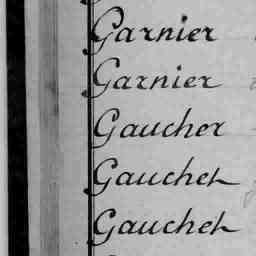 Garnier
Garnier
Gaucher
Gauchet
Gauchet